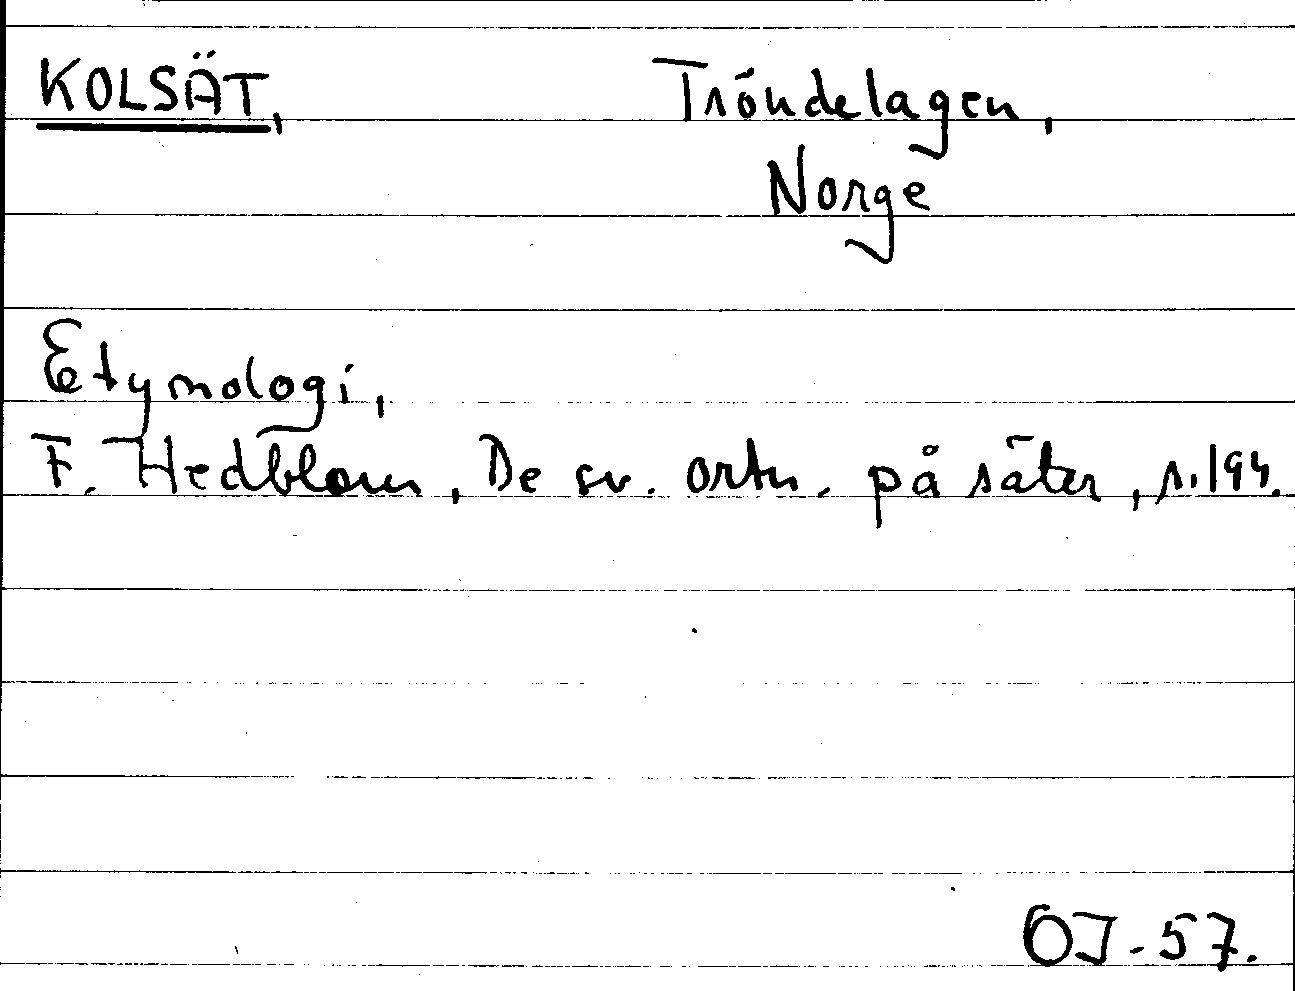 KOLSÄT, Tröndelagen,
Norge
Etymologi,
F. Hedblom, De sv. ortn. på säter, s. 194.
OJ-57.